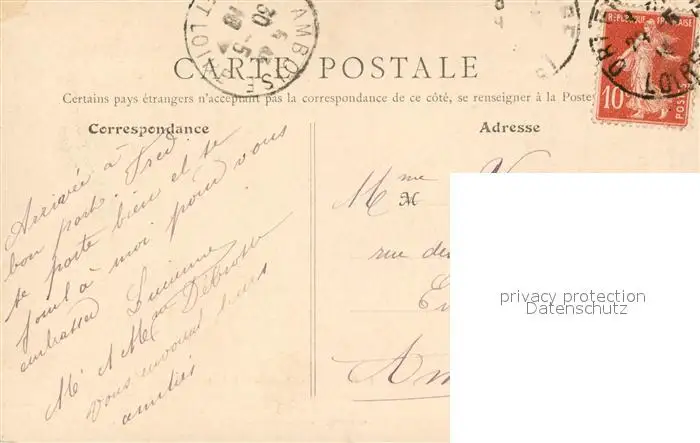 AMBOISE
30 -5
ET LOIRE
CARTE POSTALE
Certains pays étrangers n'acceptent pas la correspondance de ce côté, se renseigner à la Poste
REPUBLIQUE FRANÇAISE
10
POSTES
Correspondance
Arrivée à
bon port. Fred
se porte bien et se
joint à moi pour vous
embrasser Lucienne
Mr & Mme
vous envoient leurs
amitiés
Adresse
Mme
M
rue de
privacy protection
Datenschutz